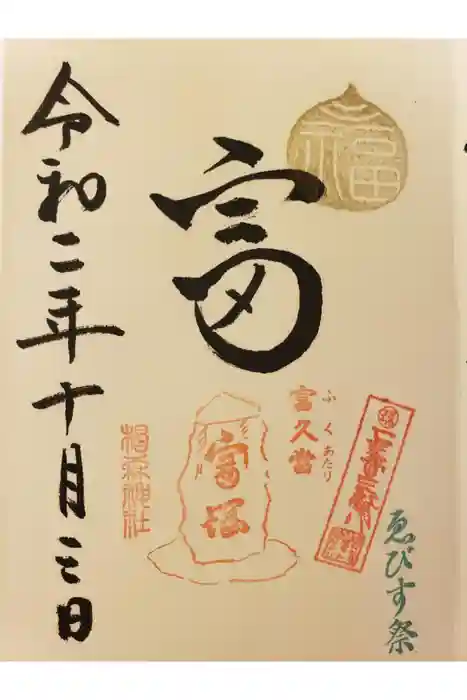 福
富
ふくあたり
富久當
富塚
椙森神社
ゑびす祭
令和二年十月三日